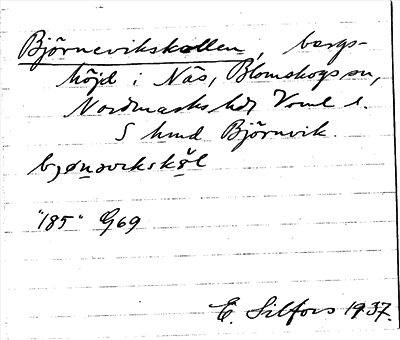 Björnevikskollen, bergs-
höjd i Näs, Blomskogs sn,
Nordmarks hd, Vrml l.
S hmd Björnvik.
bjønəvikskôl
"185" G69
E. Silfors 1937.